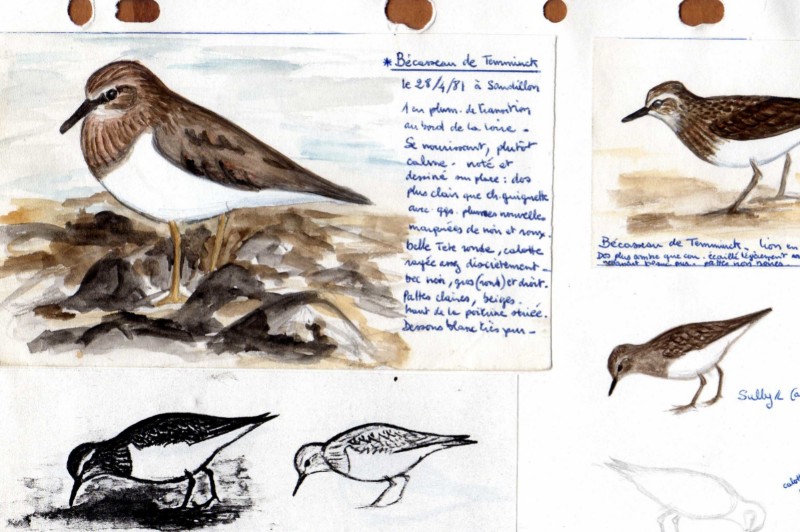 * Bécasseau de Temminck
le 28/4/81 à Sandillon
1 en plum. de transition
au bord de la Loire -
Se nourrissant, plutôt
calme - noté et
dessiné sur place : dos
plus clair que ch. guignette
avec qqs. plumes nouvelles
marquées de noir et roux
belle Tête ronde, calotte
rayée assez discrètement -
bec noir, gros (rond) et droit.
Pattes claires, beiges.
haut de la poitrine striée.
Dessous blanc très pur -
Bécasseau de Temminck - Lion en
Dos plus sombre que
écaillé légèrement
pattes
Sully/L (a
calott